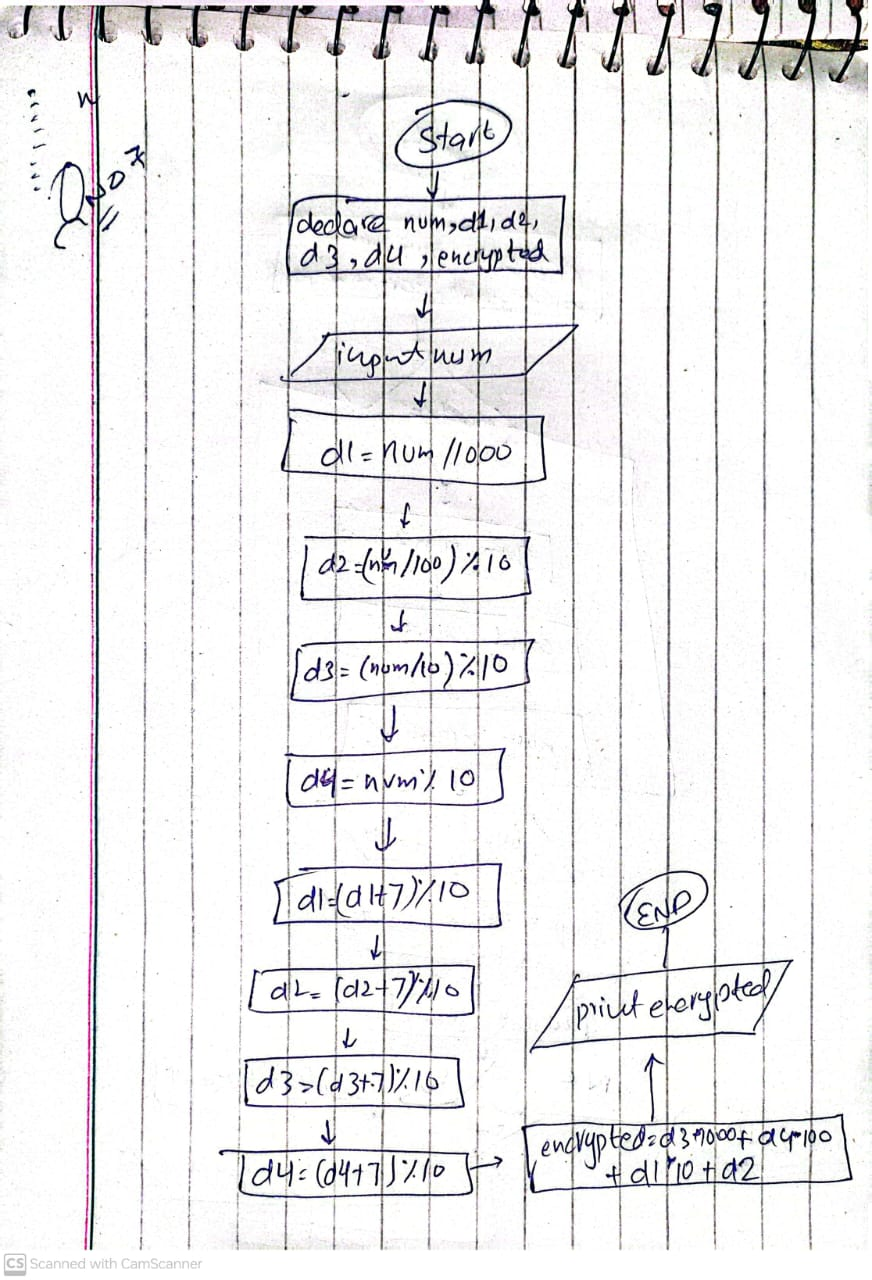 n
Start
declare num, d1, d2,
d3, d4, encrypted
input num
d1 = num //1000
d2 = (num/100) % 10
d3 = (num/10) % 10
d4 = num % 10
d1 = (d1+7) % 10
d2 = (d2+7) % 10
d3 = (d3+7) % 10
d4 = (d4+7) % 10
encrypted = d3*1000 + d4*100
+ d1*10 + d2
print encrypted
END
CS Scanned with CamScanner